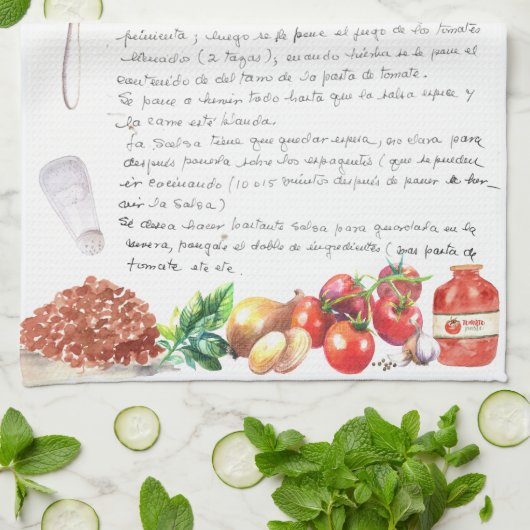 pimienta; luego se le pone el jugo de los tomates
licuado (2 tazas); cuando hierba se le pone el
contenido de del tarro de la pasta de tomate.
Se pone a hervir todo hasta que la salsa espese y
la carne esté blanda.
La salsa tiene que quedar espesa, no clara para
después ponerla sobre los espaguetis (que se pueden
ir cocinando (10 o 15 minutos después de poner a her-
vir la salsa)
Si desea hacer bastante salsa para guardarla en la
nevera, póngale el doble de ingredientes (mas pasta de
tomate etc etc.
TOMATO
paste